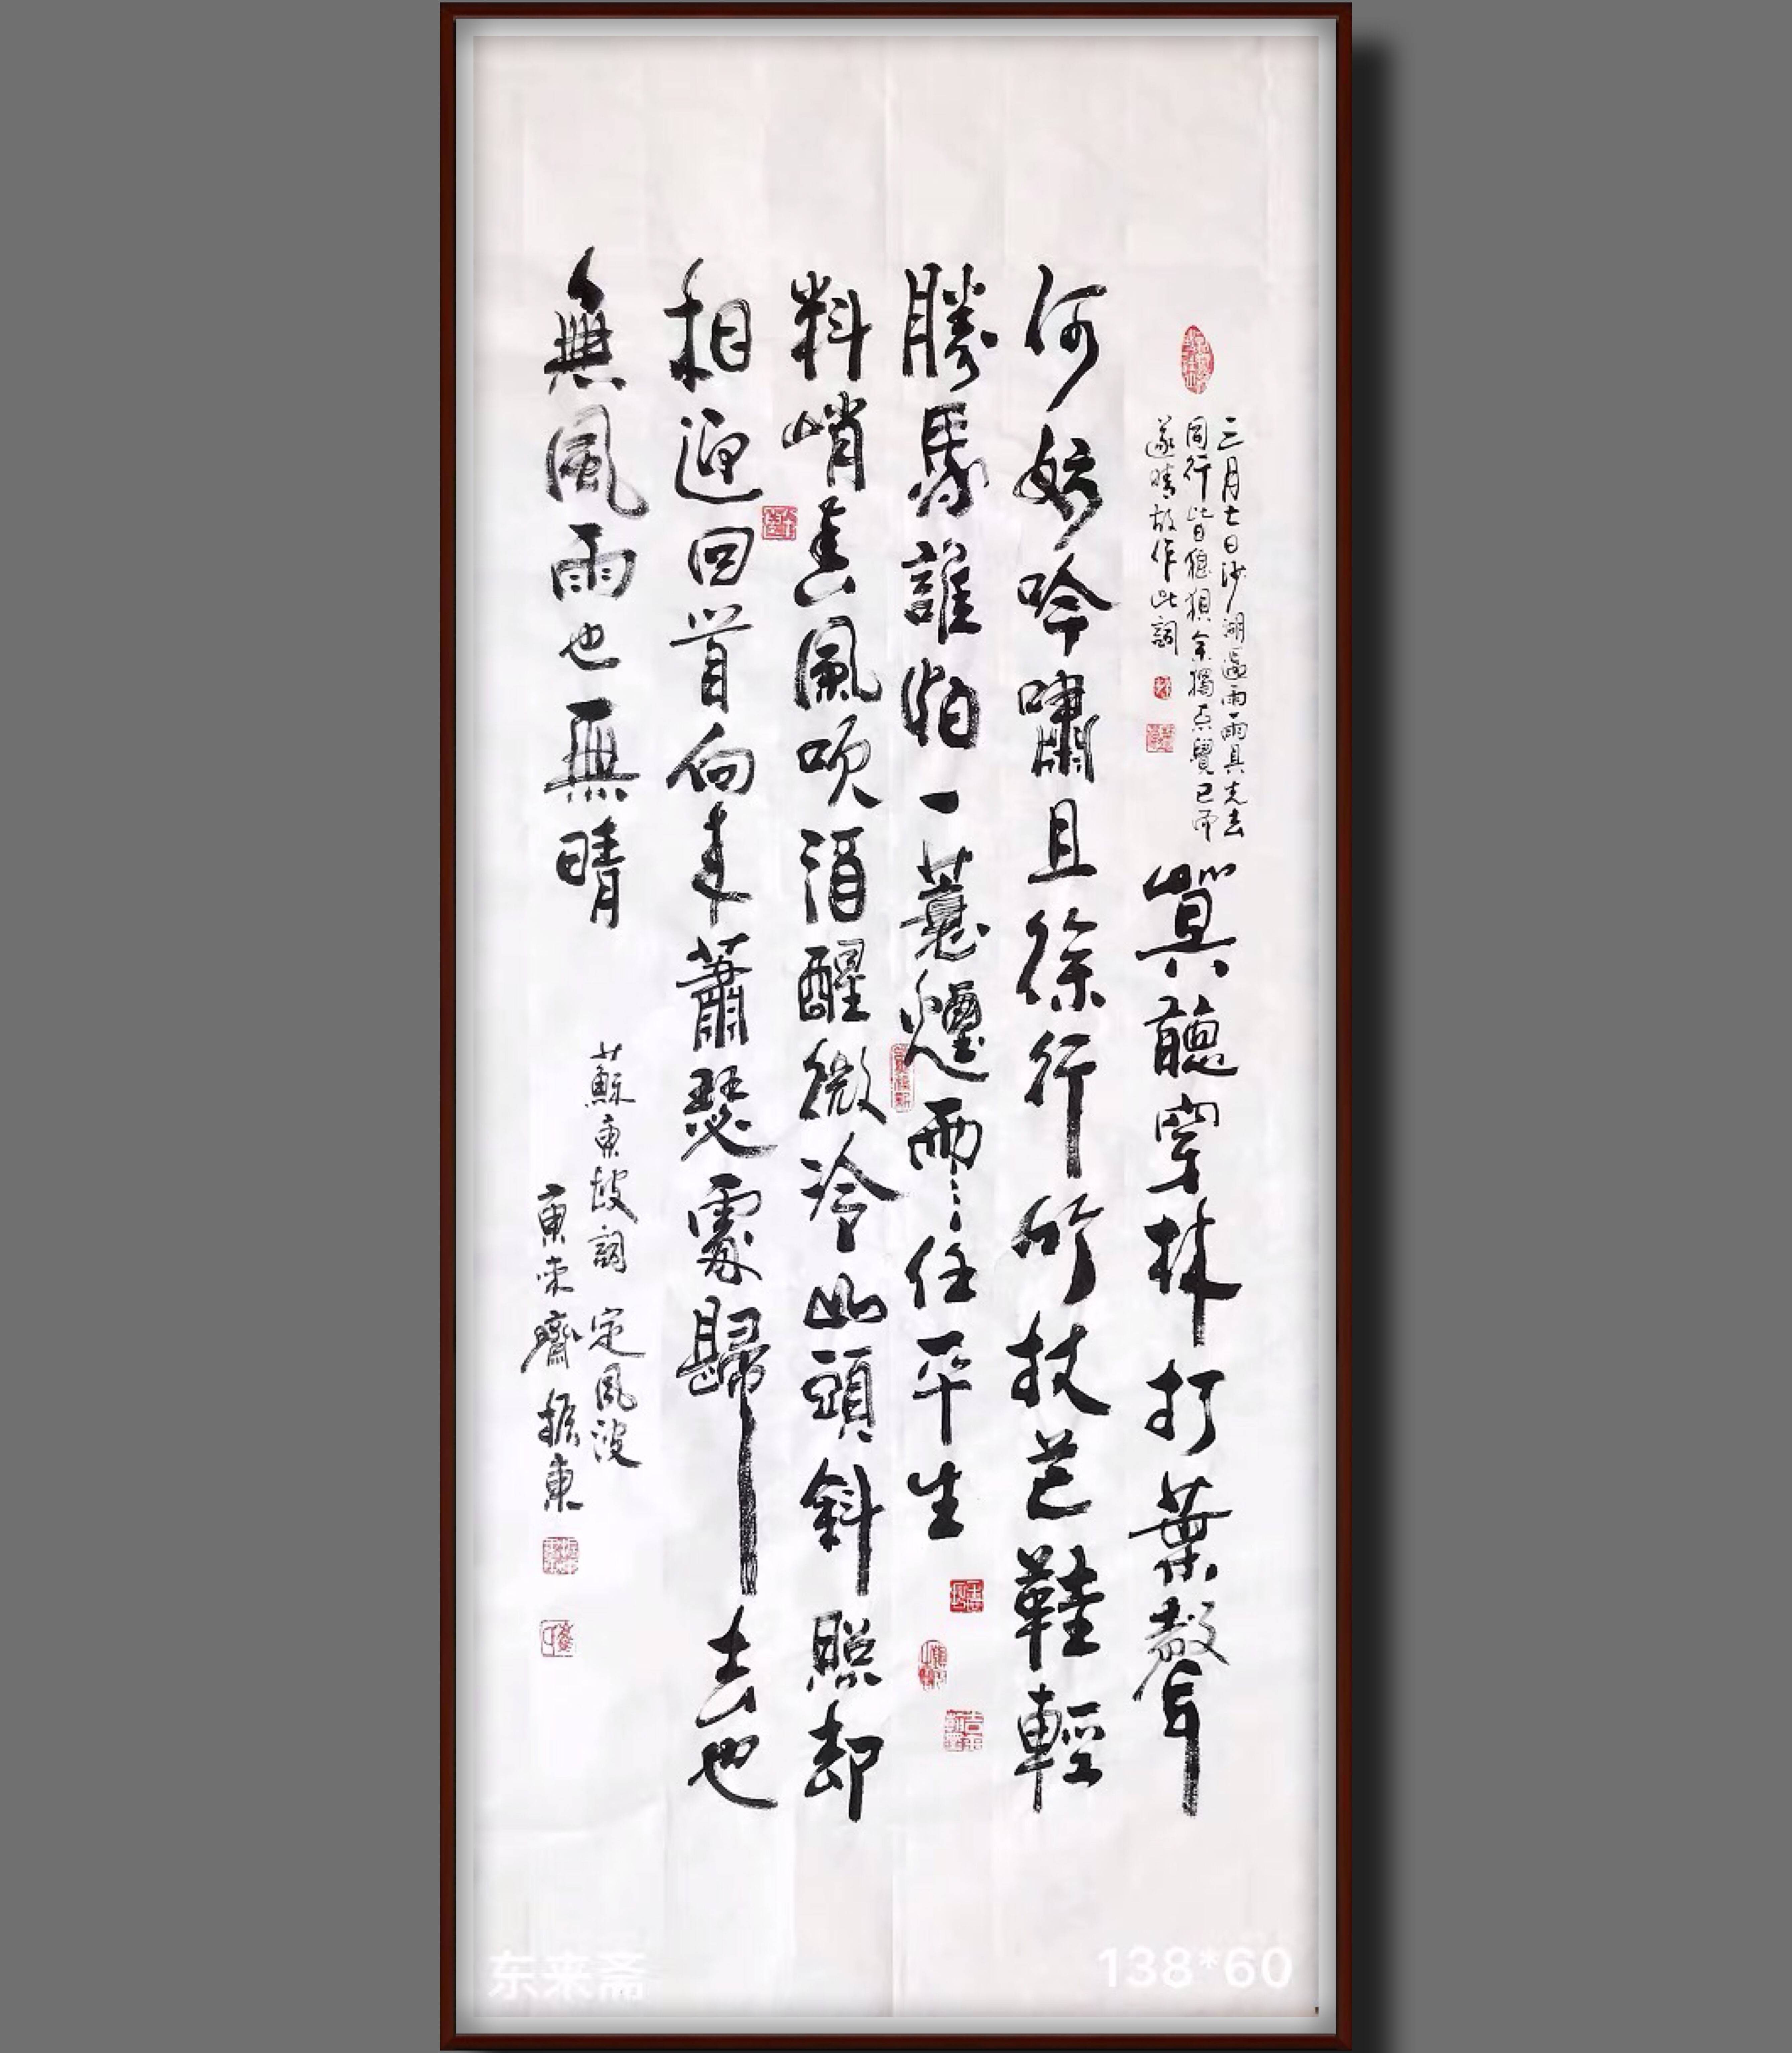 三月七日沙湖遇雨雨具先去
同行皆狼狽余獨不覺已而
遂晴故作此詞
莫聽穿林打葉聲
何妨吟嘯且徐行竹杖芒鞋輕
勝馬誰怕一蓑煙雨任平生
料峭春風吹酒醒微冷山頭斜照却
相迎回首向來蕭瑟處歸去也
無風雨也無晴
蘇東坡詞 定風波
東來齋 振東
东来斋
138*60